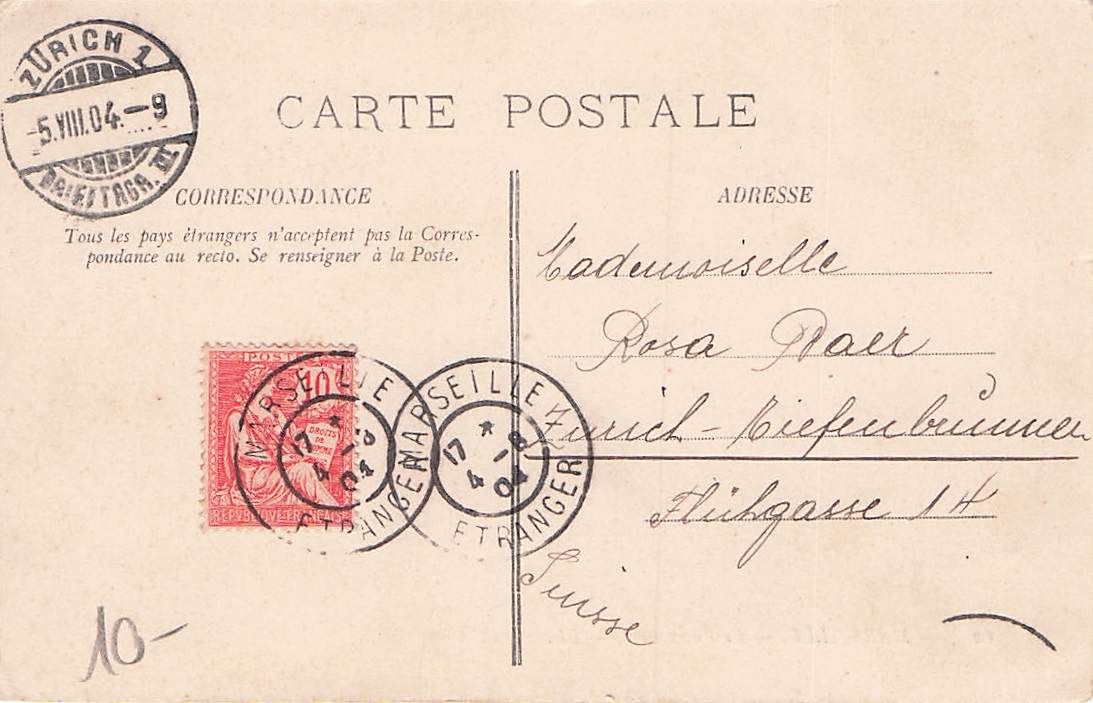 ZÜRICH 1
-5.VIII.04.-9
BRIEFTRGR. III
CARTE POSTALE
CORRESPONDANCE
Tous les pays étrangers n'acceptent pas la Corres-
pondance au recto. Se renseigner à la Poste.
ADRESSE
Mademoiselle
Rosa Baer
Zürich - Tiefenbrunnen
Flühgasse 14
Suisse
POSTES
10
DROITS
DE
L'HOMME
REPUBLIQUE FRANÇAISE
MARSEILLE
17 * 4 -8 04
ETRANGER
MARSEILLE
17 * 4 -8 04
ETRANGER
10-